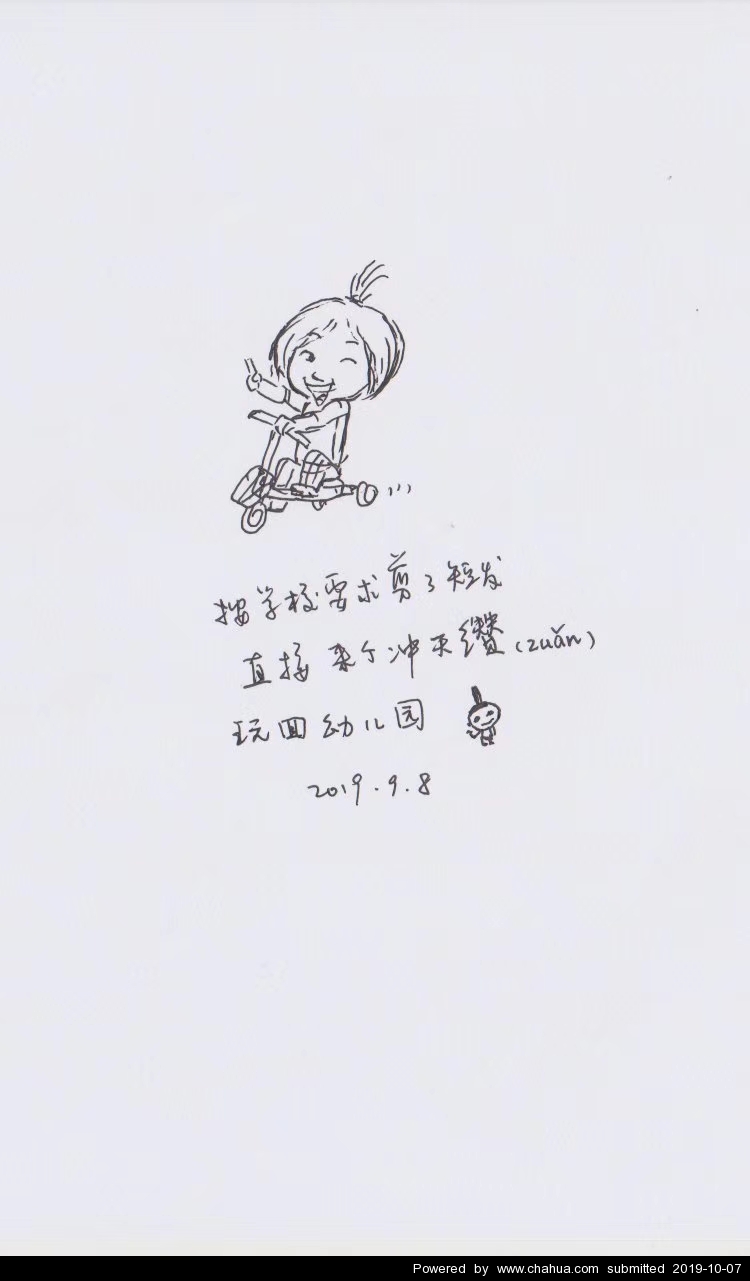 按学校要求剪了短发
直接来个冲天缵(zuǎn)
玩回幼儿园
2019.9.8
Powered by www.chahua.com submitted 2019-10-07